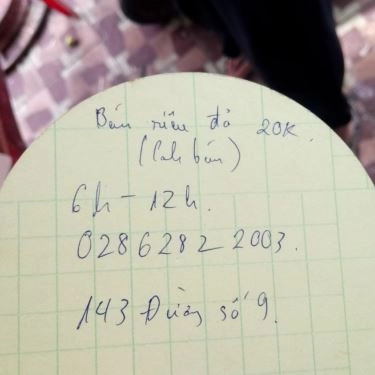 Bún riêu đỏ 20K.
(bán)
6h - 12h.
0286282 2003.
143 Đường số 9.